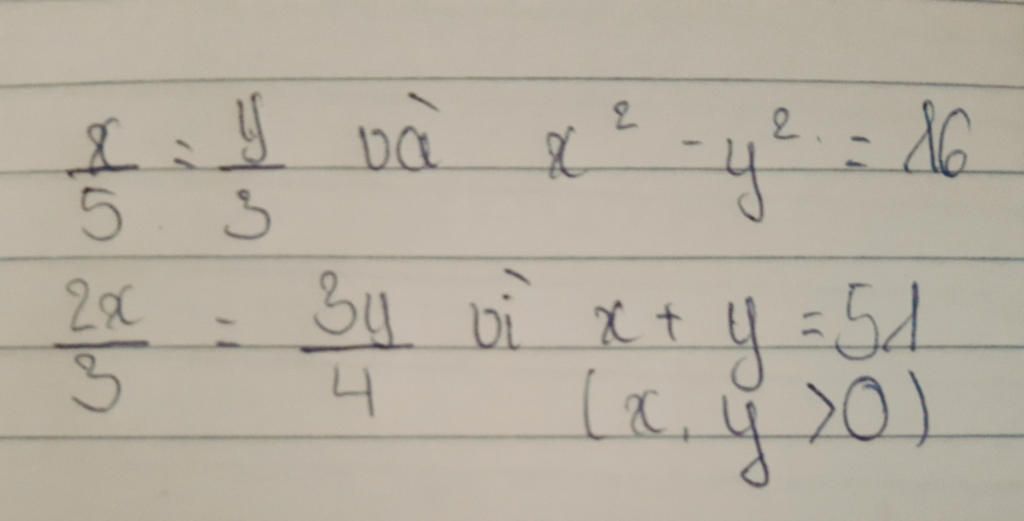 x/5 = y/3 và x² - y² = 16
2x/3 = 3y/4 vì x + y = 51
(x, y > 0)